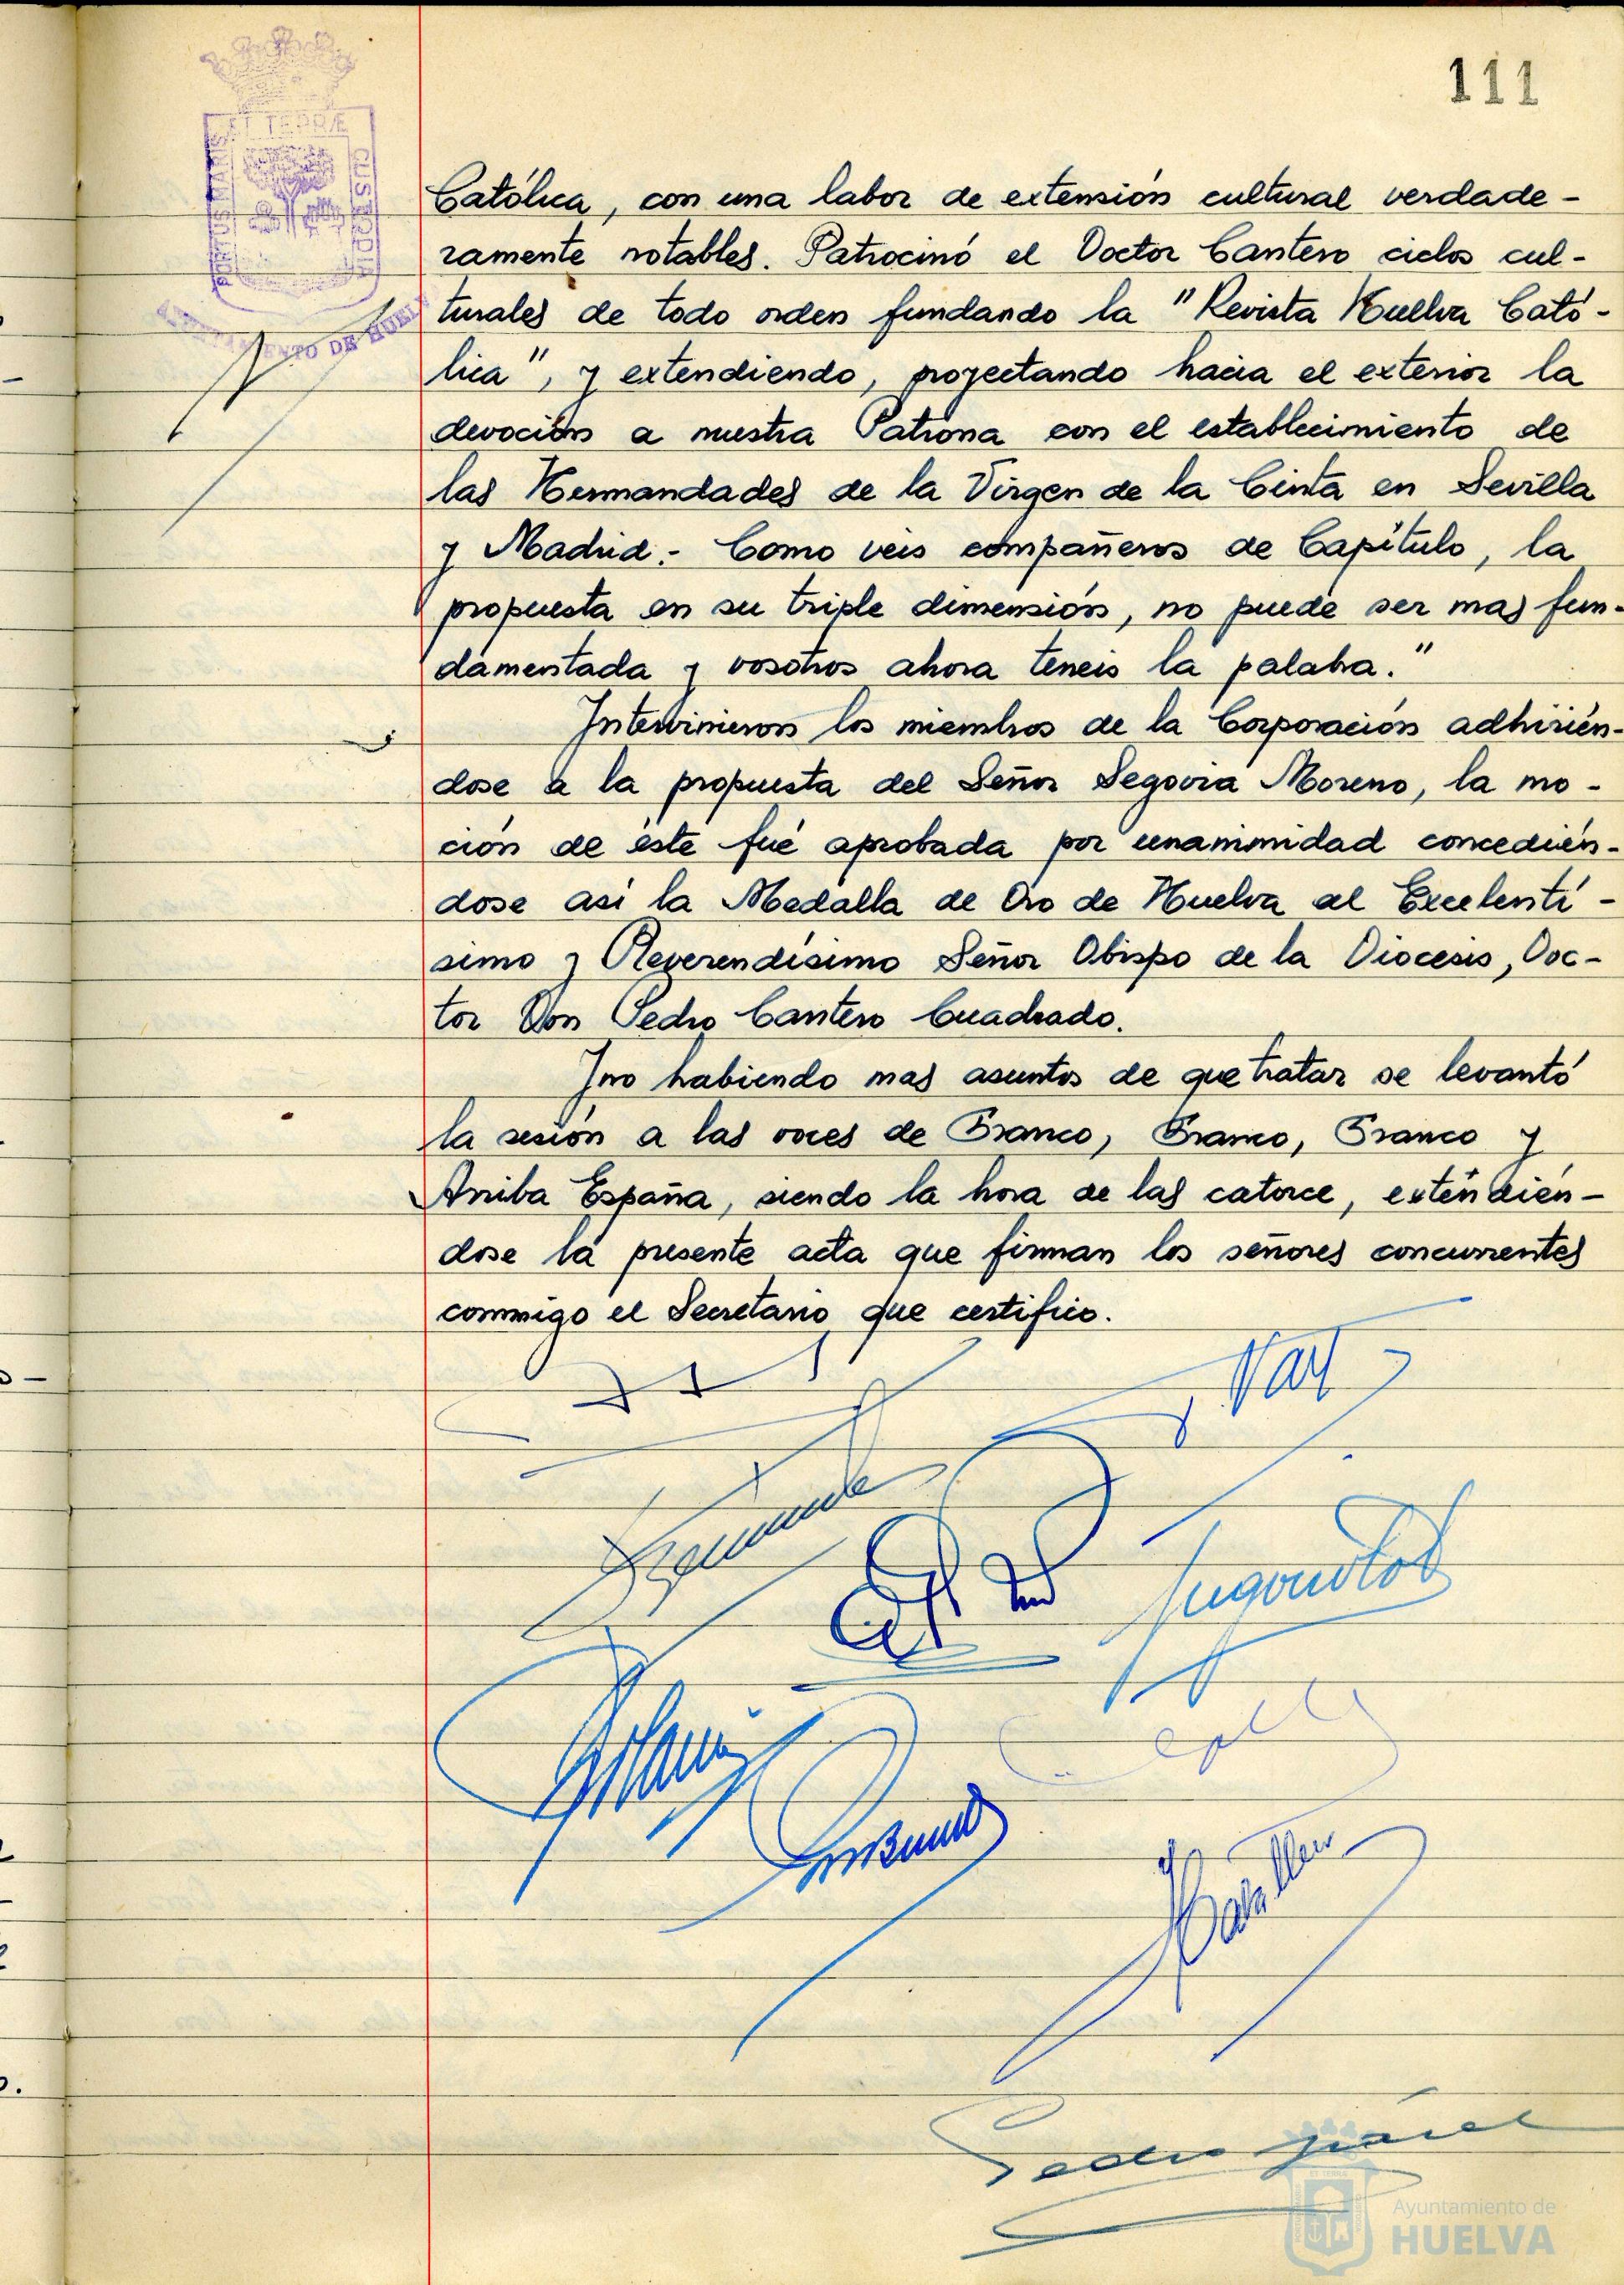 111
PORTUS MARIS ET TERRÆ CUSTODIA
AYUNTAMIENTO DE HUELVA
Católica, con una labor de extensión cultural verdade-
ramente notables. Patrocinó el Doctor Cantero ciclos cul-
turales de todo orden fundando la "Revista Huelva Cató-
lica", y extendiendo, proyectando hacia el exterior la
devoción a nuestra Patrona con el establecimiento de
las Hermandades de la Virgen de la Cinta en Sevilla
y Madrid.- Como veis compañeros de Capítulo, la
propuesta en su triple dimensión, no puede ser mas fun-
damentada y vosotros ahora teneis la palabra."
Intervinieron los miembros de la Corporación adhirién-
dose a la propuesta del Señor Segovia Moreno, la mo-
ción de éste fué aprobada por unanimidad concedién-
dose asi la Medalla de Oro de Huelva al Excelentí-
simo y Reverendísimo Señor Obispo de la Diocesis, Doc-
tor Don Pedro Cantero Cuadrado.
Y no habiendo mas asuntos de que tratar se levantó
la sesión a las voces de Franco, Franco, Franco y
Arriba España, siendo la hora de las catorce, extendién-
dose la presente acta que firman los señores concurrentes
conmigo el Secretario que certifico.
Pedro
Ayuntamiento de
HUELVA